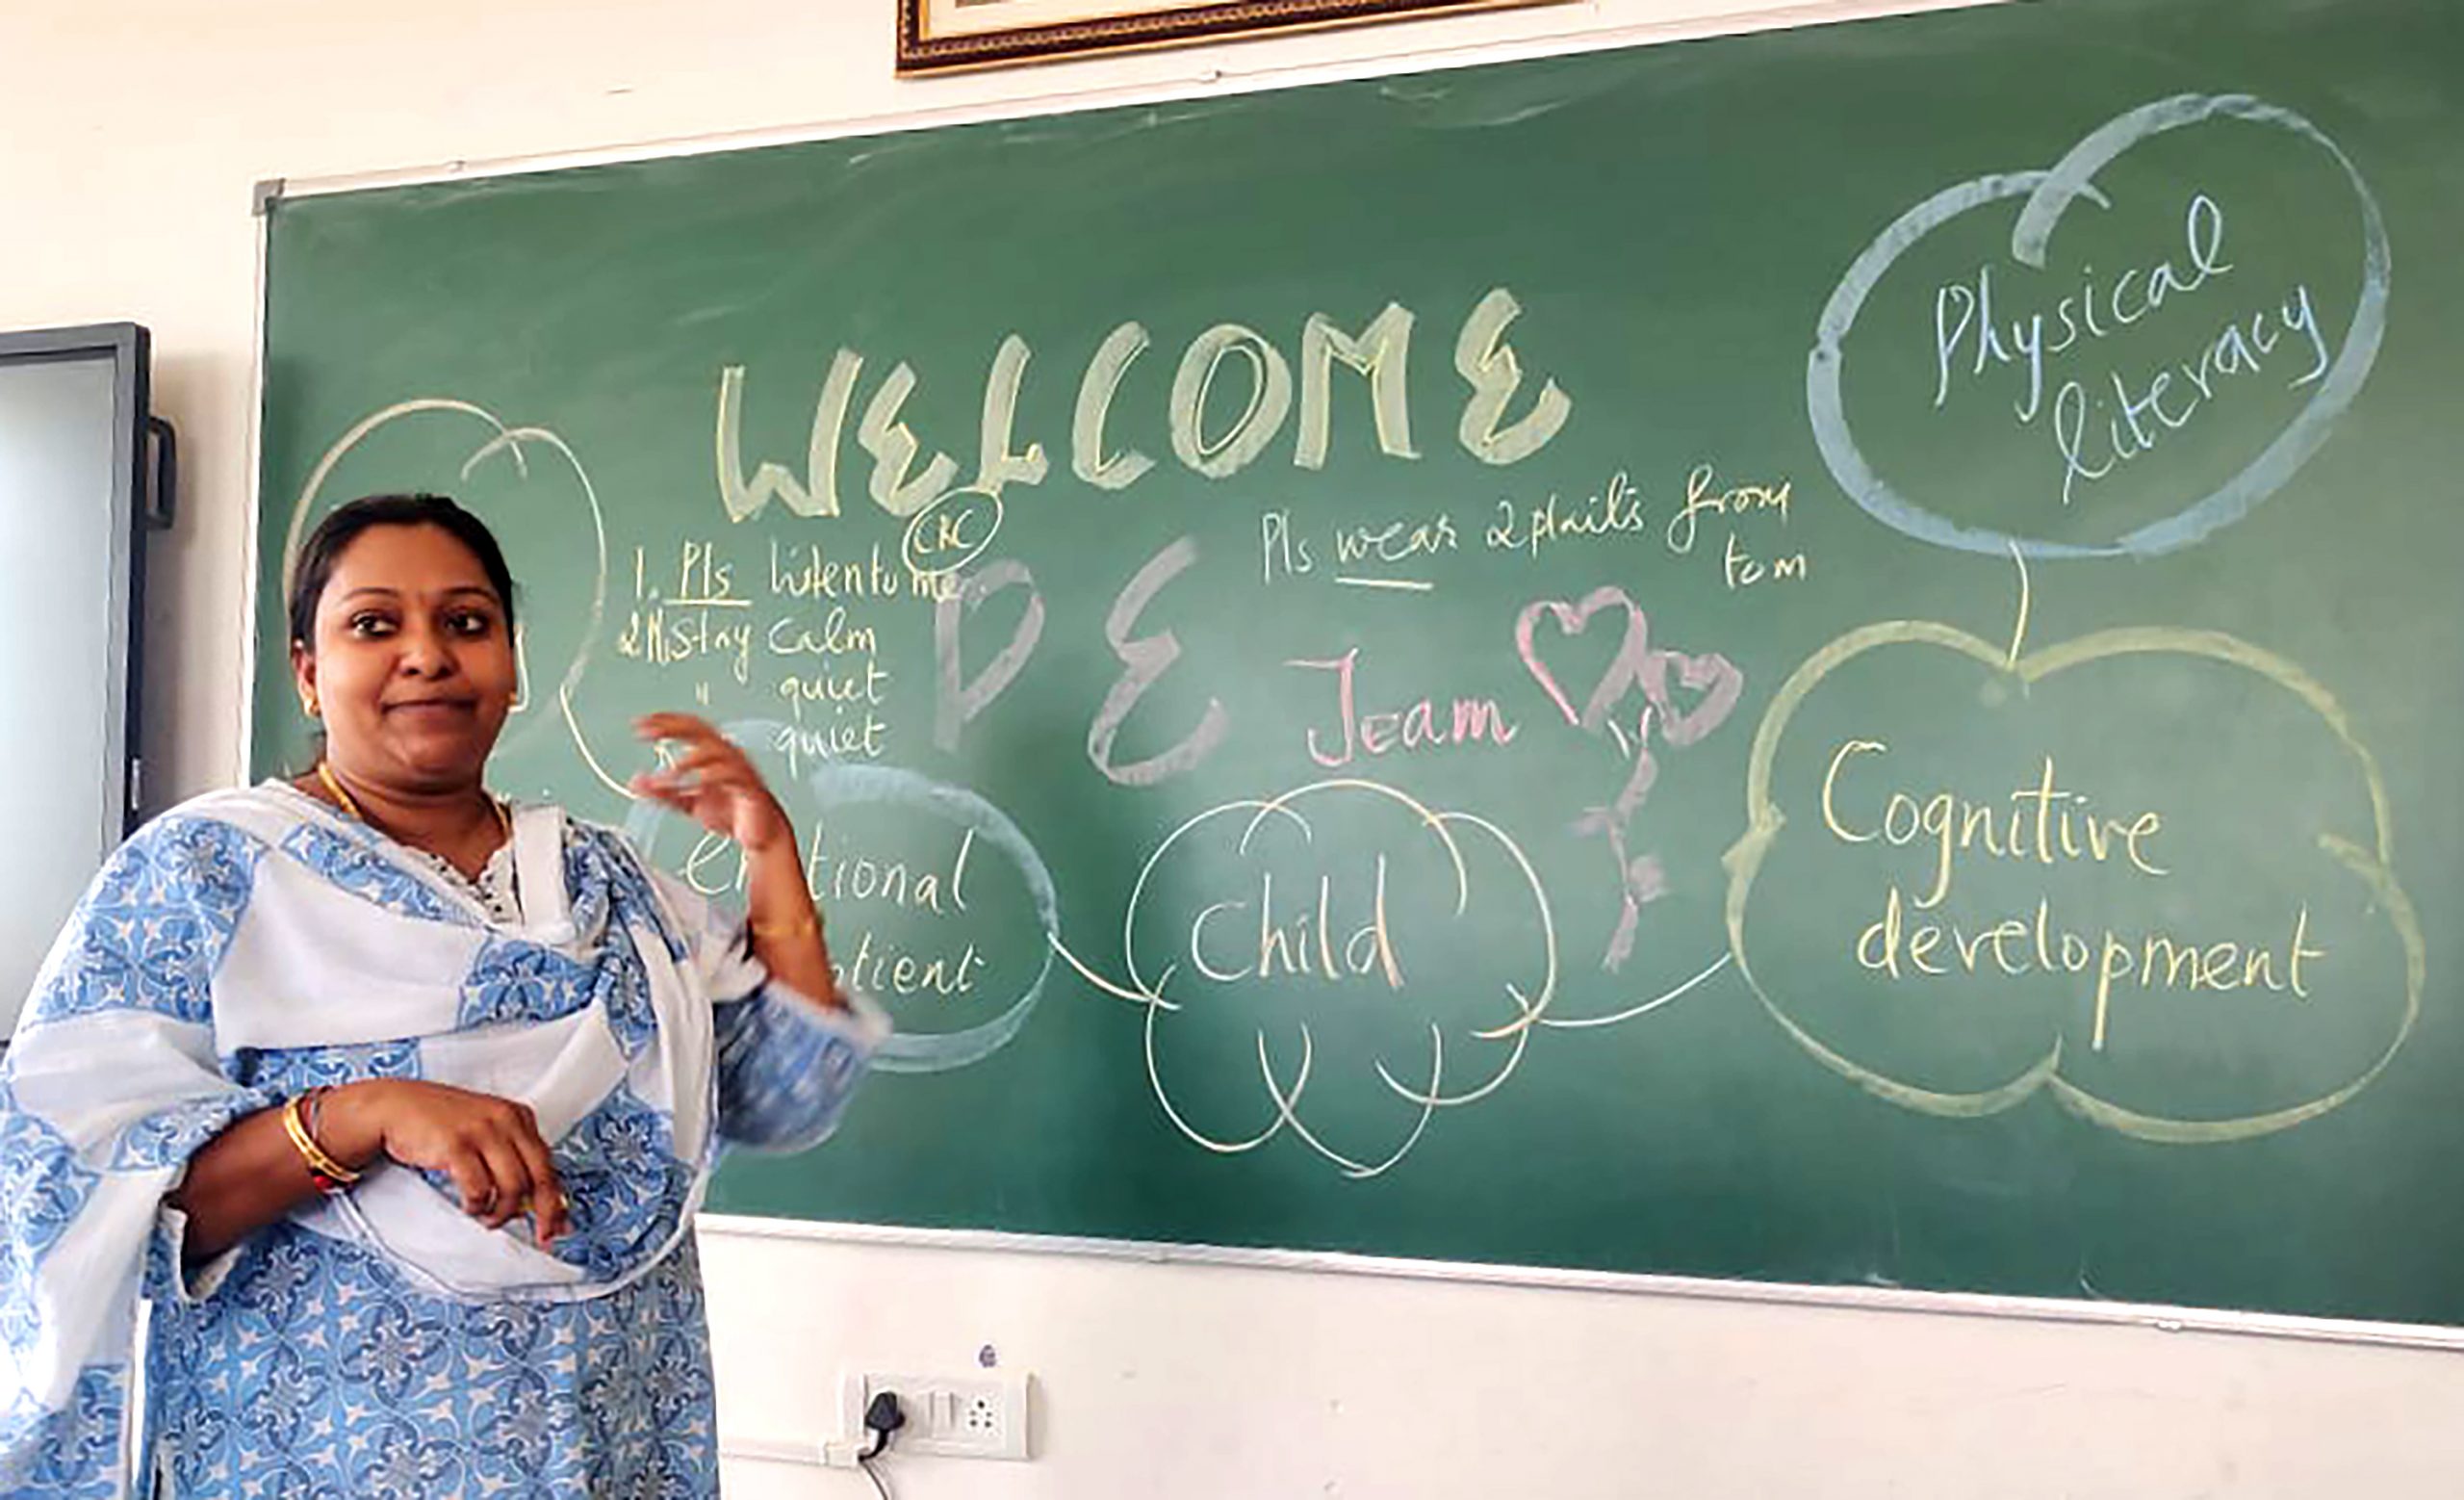 WELCOME
CRC
1. Pls listen to me
2 Pls stay calm
" quiet
" quiet
Pls wear 2 plaits from
tom
PE Team
Physical
literacy
Cognitive
development
Child